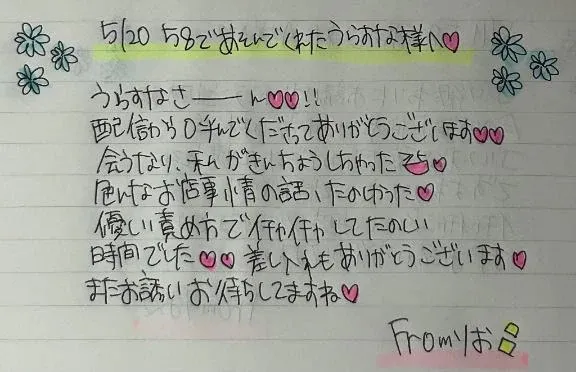 5/20 58であそんでくれたうらすな様へ♡
うらすなさーーん♡♡!!
配信から呼んでくださってありがとうございます♡♡
会うなり、私がきんちょうしちゃった♡
色んなお店事情の話、たのしかった♡
優しい責め方でイチャイチャしてたのしい
時間でした♡♡ 差し入れもありがとうございます♡
またお誘いお待ちしてますね♡
Fromりお